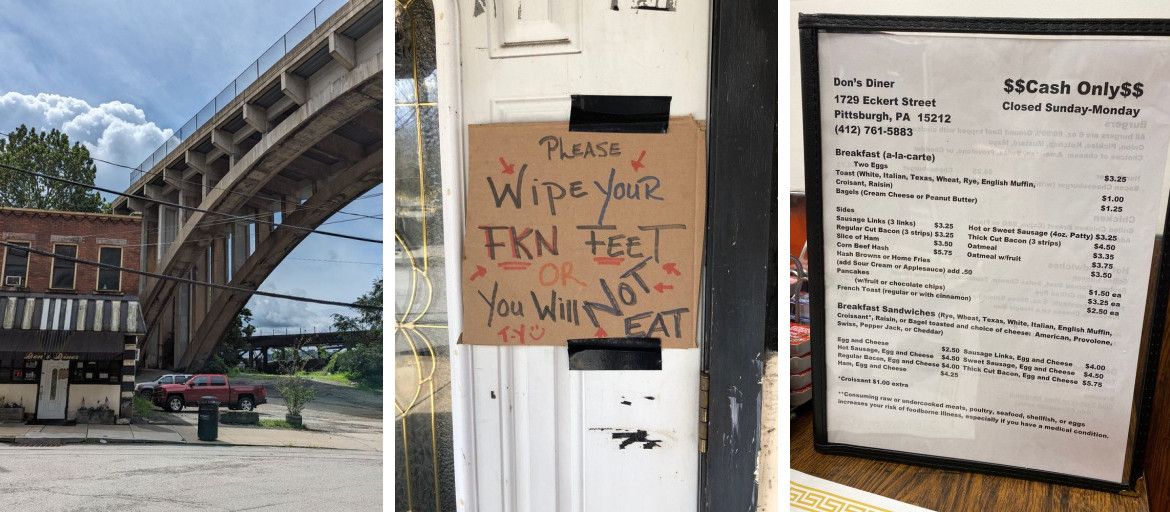 Don's Diner
PLEASE
WIPE YOUR
FKN FEET
OR
You Will NOT
EAT
T-Y
Don's Diner
$$Cash Only$$
1729 Eckert Street
Closed Sunday-Monday
Pittsburgh, PA 15212
(412) 761-5883
Breakfast (a-la-carte)
Two Eggs $3.25
Toast (White, Italian, Texas, Wheat, Rye, English Muffin,
Croisant, Raisin) $1.00
Bagels (Cream Cheese or Peanut Butter) $1.25
Sides
Sausage Links (3 links) $3.25 Hot or Sweet Sausage (4oz. Patty) $3.25
Regular Cut Bacon (3 strips) $3.25 Thick Cut Bacon (3 strips) $4.50
Slice of Ham $3.50 Oatmeal $3.35
Corn Beef Hash $5.75 Oatmeal w/fruit $3.75
Hash Browns or Home Fries $3.50
(add Sour Cream or Applesauce) add .50
Pancakes $1.50 ea
(w/fruit or chocolate chips) $3.25 ea
French Toast (regular or with cinnamon) $2.50 ea
Breakfast Sandwiches (Rye, Wheat, Texas, White, Italian, English Muffin,
Croissant*, Raisin, or Bagel toasted and choice of cheese: American, Provolone,
Swiss, Pepper Jack, or Cheddar)
Egg and Cheese $2.50 Sausage Links, Egg and Cheese $4.00
Hot Sausage, Egg and Cheese $4.50 Sweet Sausage, Egg and Cheese $4.50
Regular Bacon, Egg and Cheese $4.00 Thick Cut Bacon, Egg and Cheese $5.75
Ham, Egg and Cheese $4.25
*Croissant $1.00 extra
**Consuming raw or undercooked meats, poultry, seafood, shellfish, or eggs
increases your risk of foodborne illness, especially if you have a medical condition.